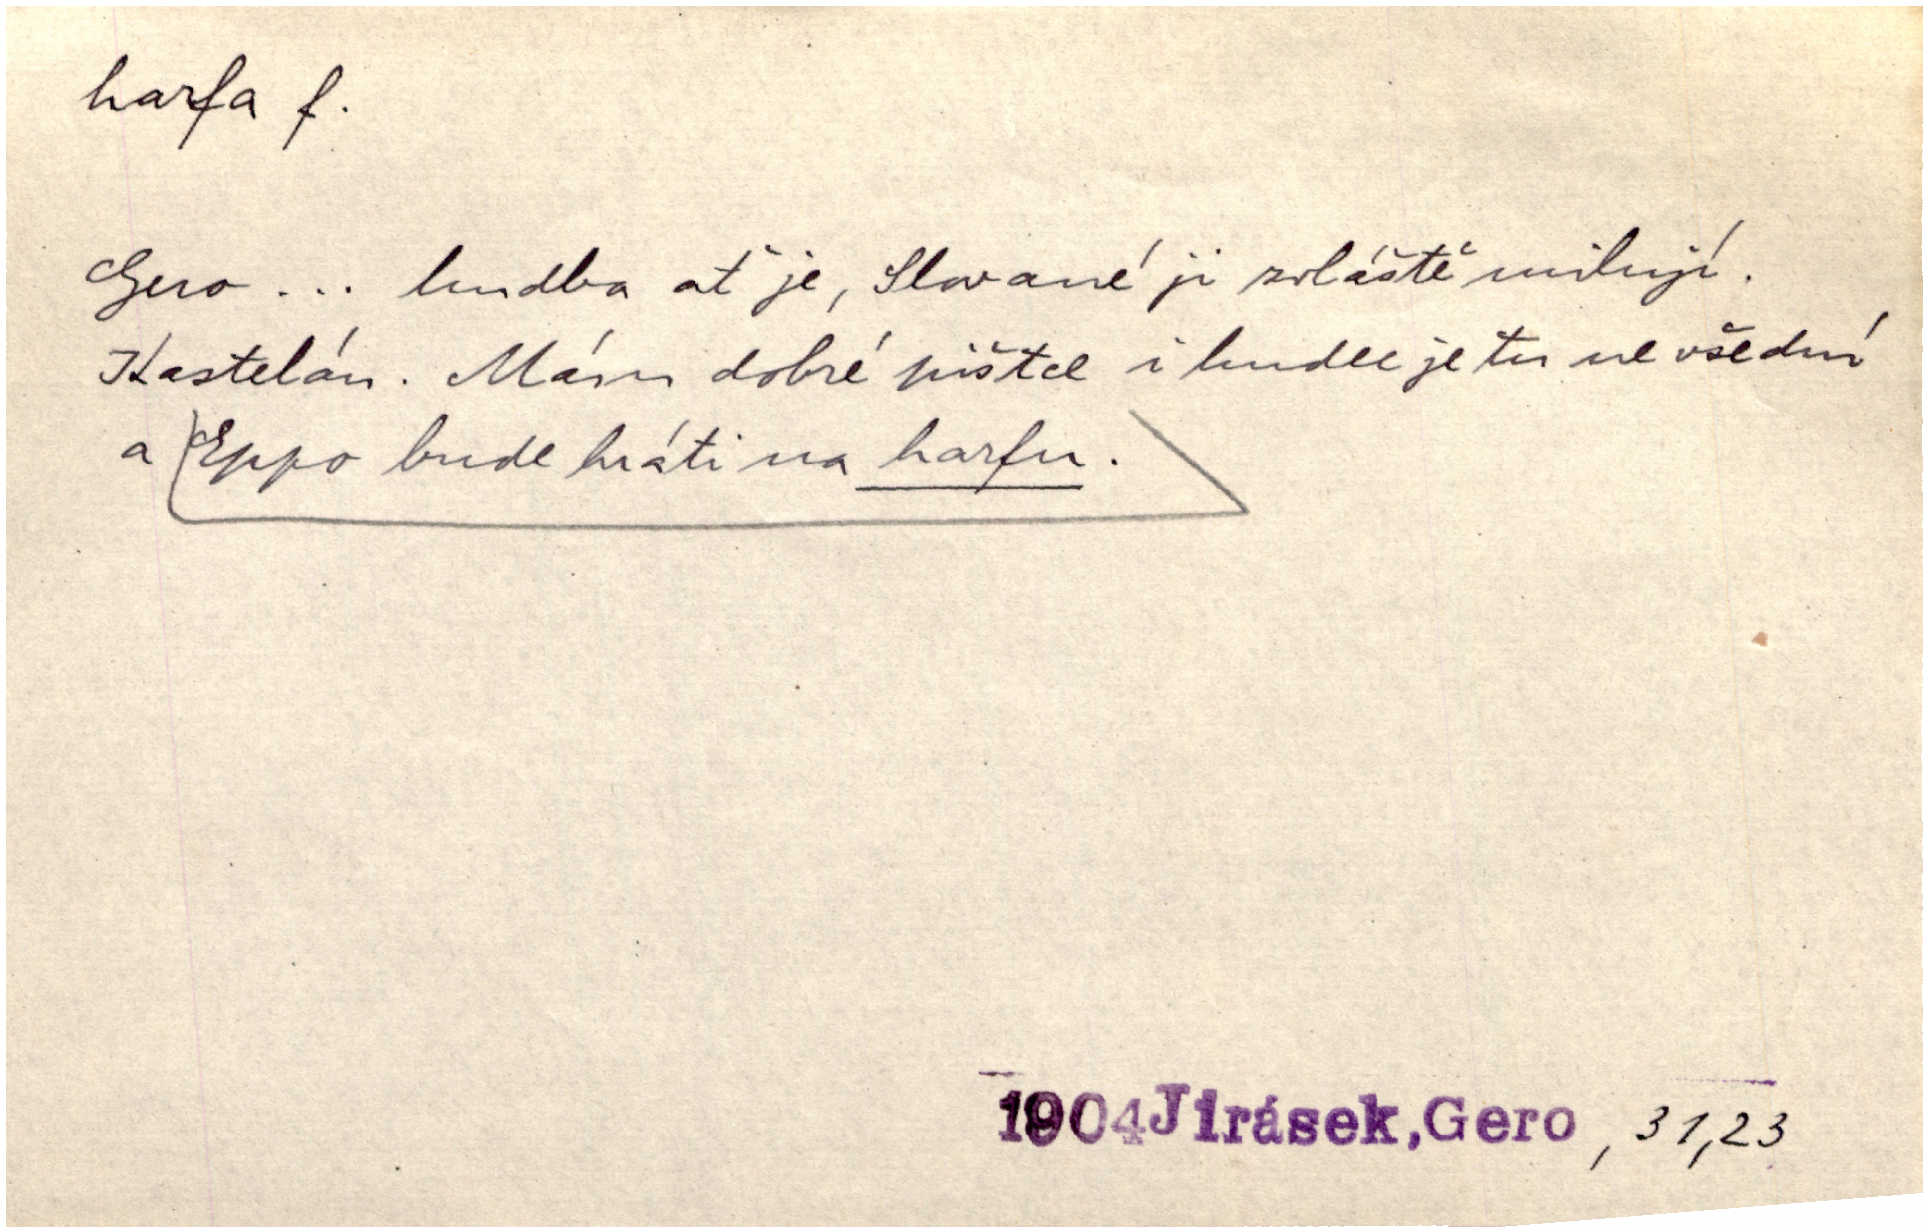 harfa f.
Gero ... hudba ať je, Slované ji zvláště milují.
Kastelán. Mám dobré pištce i hudec je tu nevšední
a Eppo bude hráti na harfu.
1904 Jirásek, Gero , 31,23